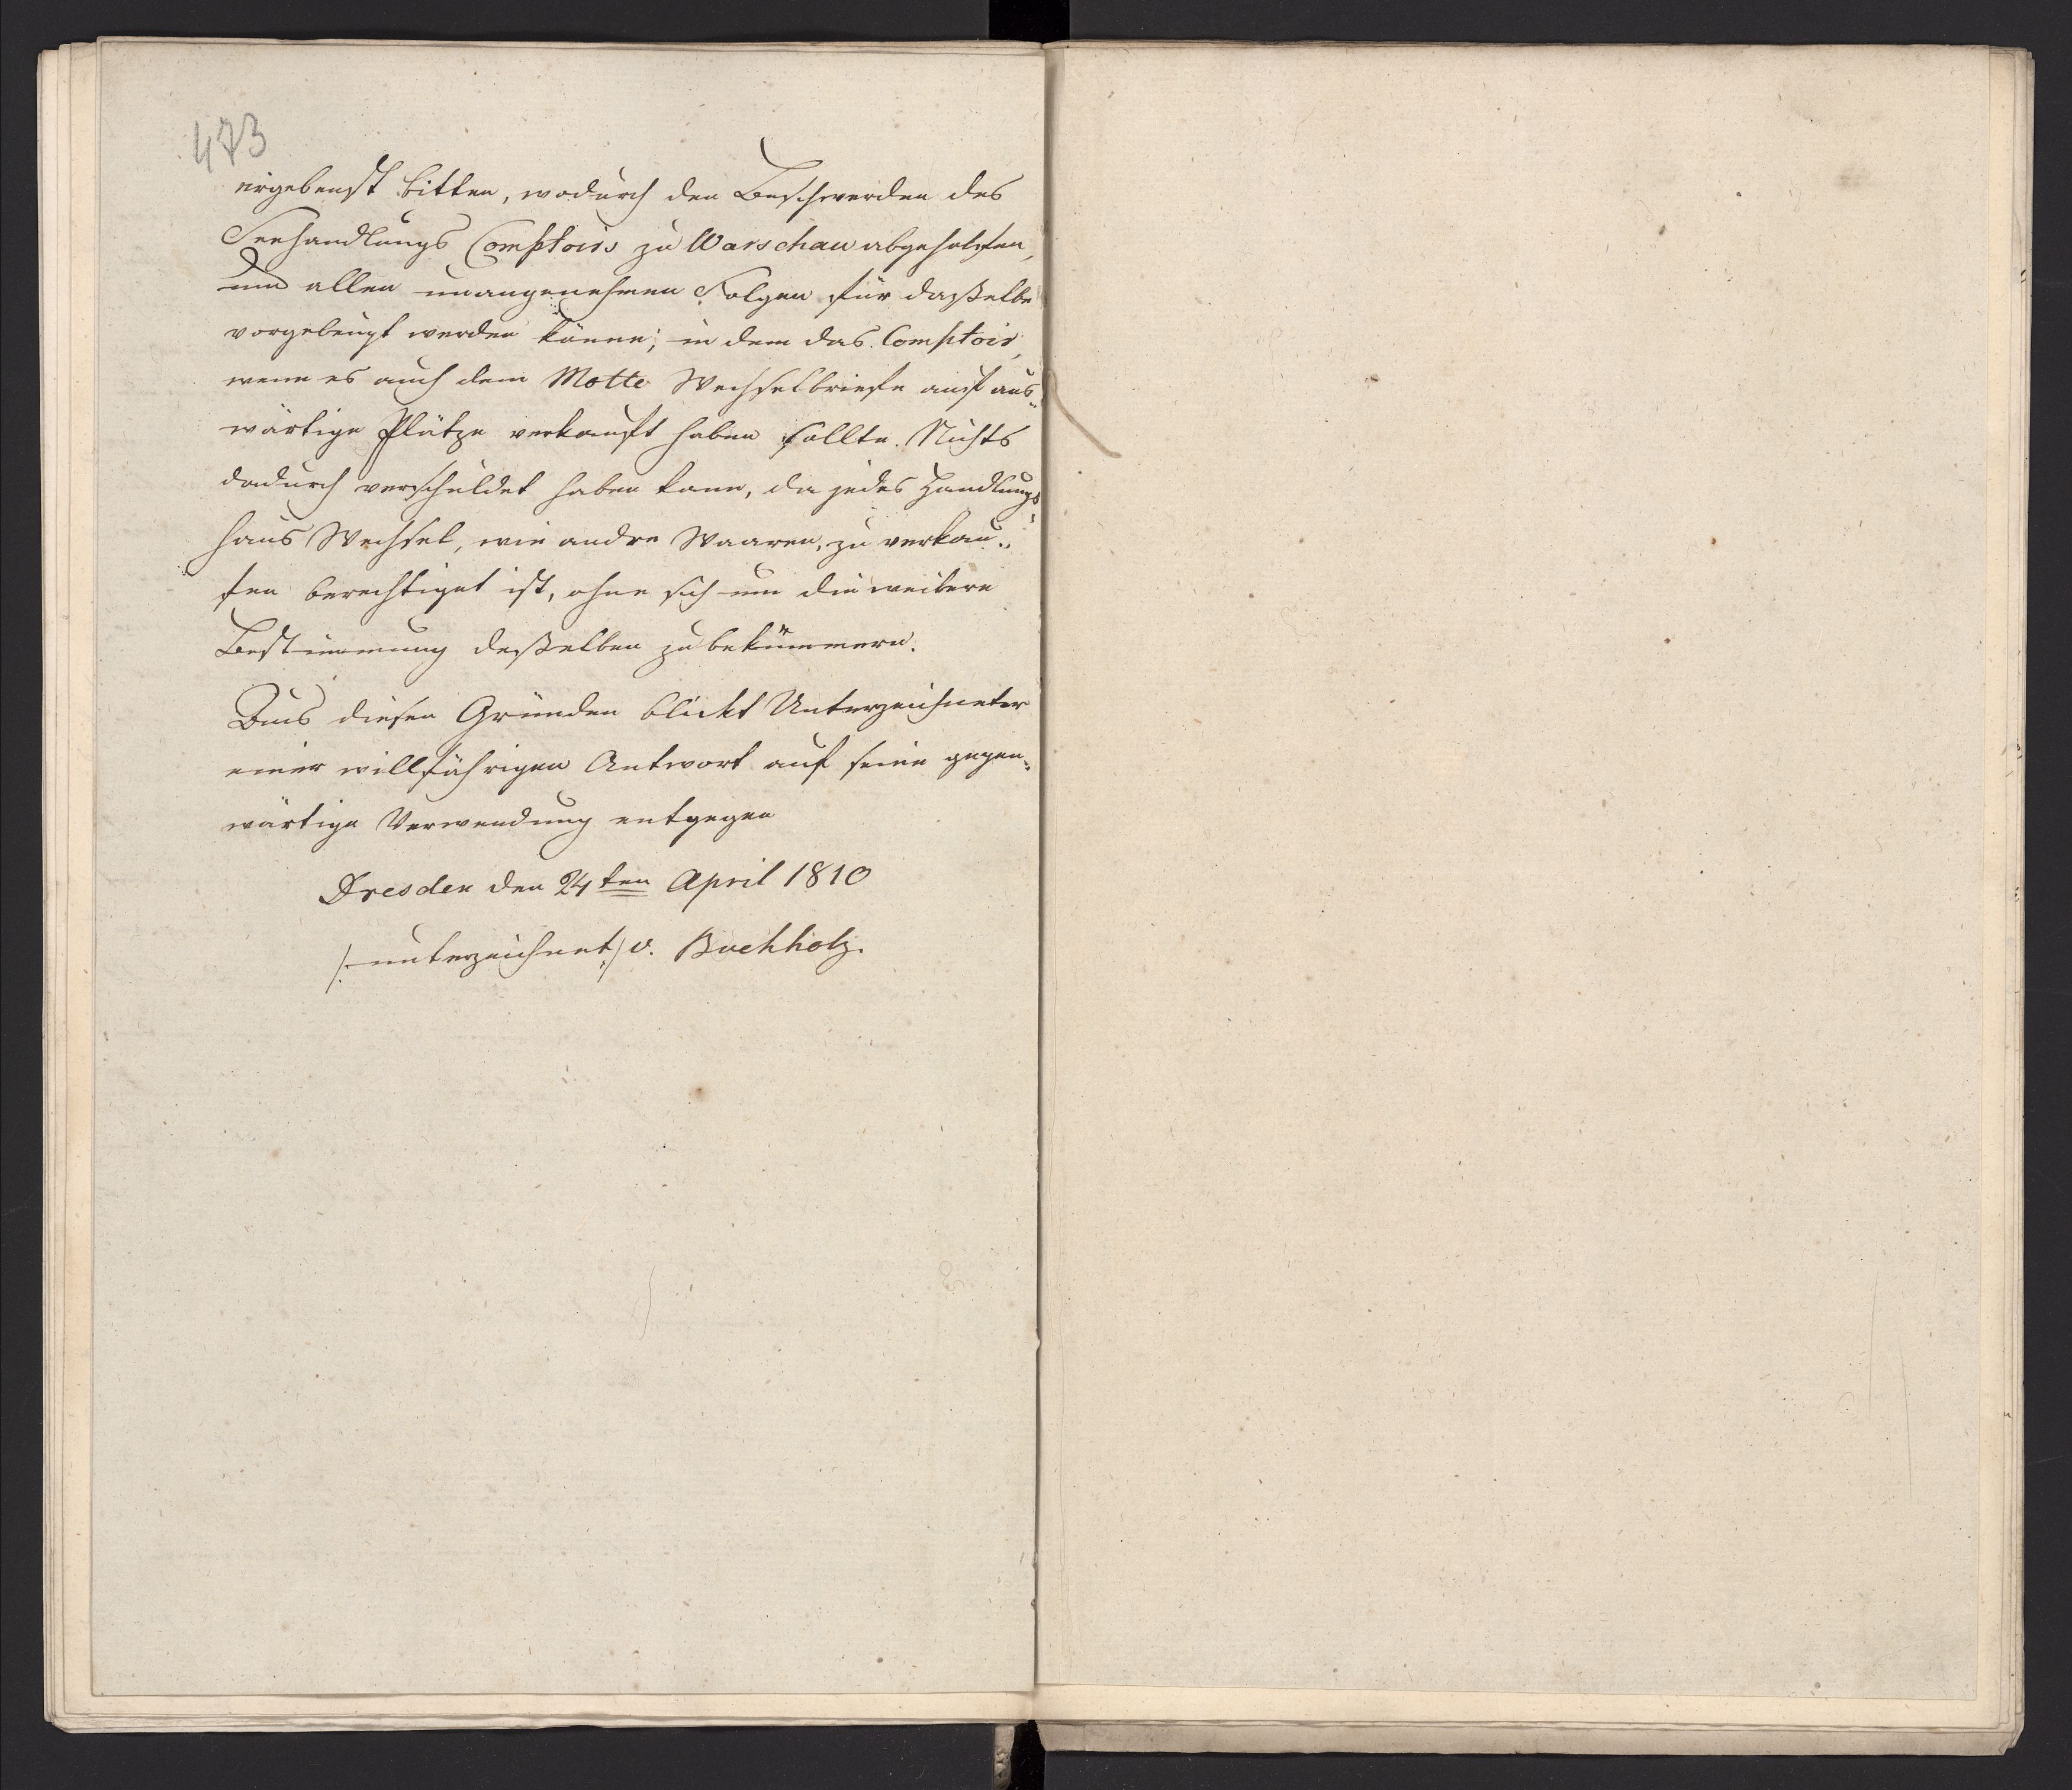 473
ergebenst bitten, wodurch den Beschwerden des
Seehandlungs Comptoirs zu Warschau abgeholfen,
und allen unangenehmen Folgen für daßelbe
vorgebeugt werden könne; in dem das Comptoir,
wenn es auch dem Motte Wechselbriefe auf aus„
wärtige Plätze verkauft haben sollte. Nichts
dadurch verschuldet haben kann, da jedes Handlungs„
haus Wechsel, wie andre Waaren, zu verkau„
fen berechtiget ist, ohne sich um die weitere
Bestimmung deßelben zu bekümmern.
Aus diesen Gründen blickt Unterzeichneter
einer willfährigen Antwort auf seine gegen„
wärtige Verwendung entgegen
Dresden den 24ten April 1810
/: unterzeichnet :/ v. Buchholz.